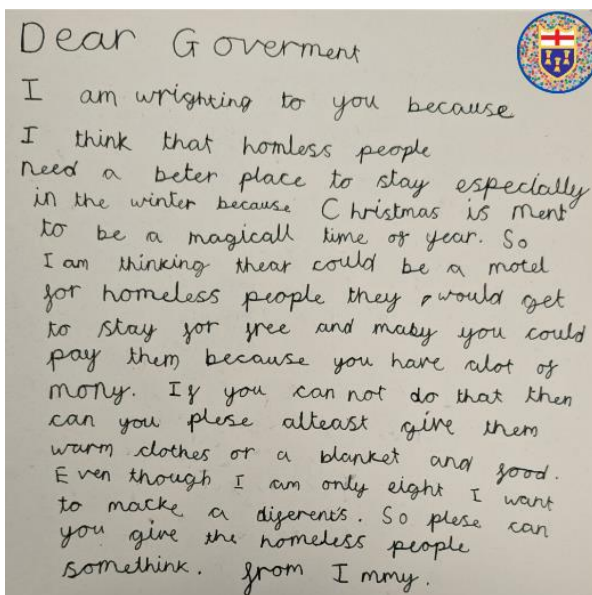 Dear Goverment
I am wrighting to you because
I think that homless people
need a beter place to stay especially
in the winter because Christmas is ment
to be a magicall time of year. So
I am thinking thear could be a motel
for homeless people they would get
to stay for free and maby you could
pay them because you have alot of
mony. If you can not do that then
can you plese alteast give them
warm clothes or a blanket and food.
Even though I am only eight I want
to macke a diferents. So plese can
you give the homeless people
somethink. from Immy.